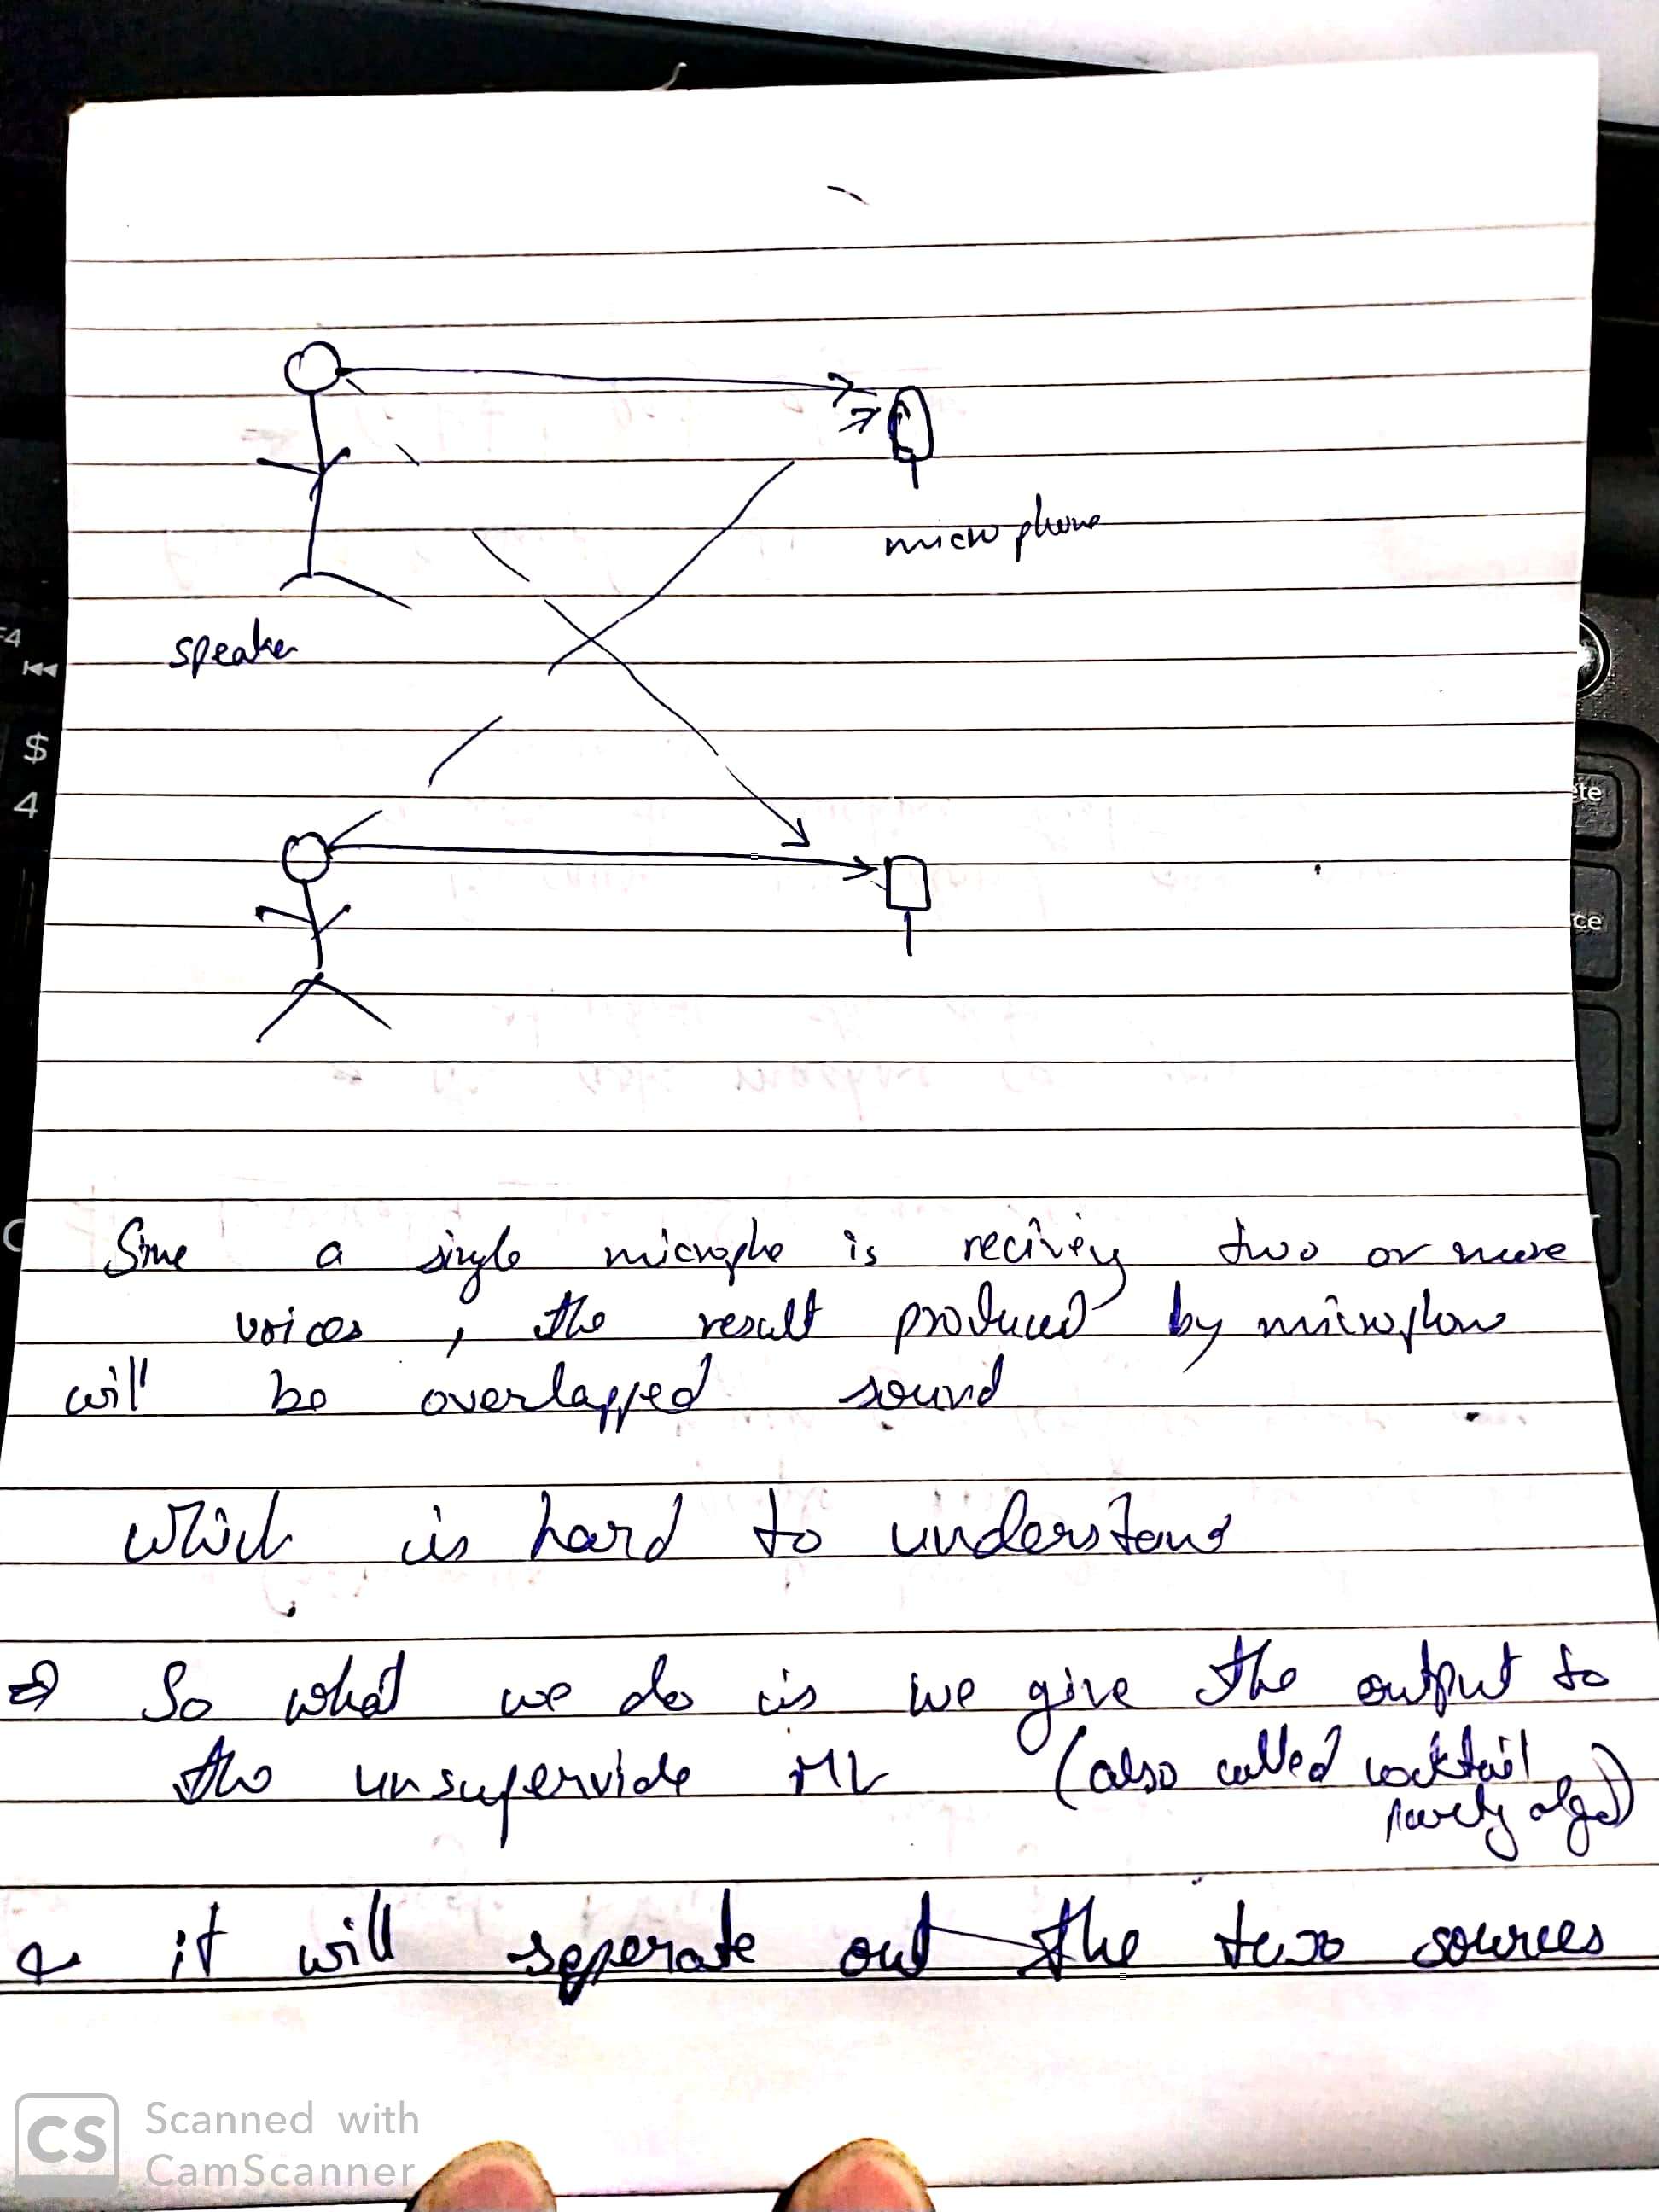 microphone
speaker
Sine a single microphe is reciving two or more
voices , the result produced by microphone
will be overlapped sound
which is hard to understand
⇒ So what we do is we give the output to
the unsupervide ML (also called cocktail
party algo)
& it will seperate out the two sources
F4
$
4
ete
ce
CS Scanned with
CamScanner